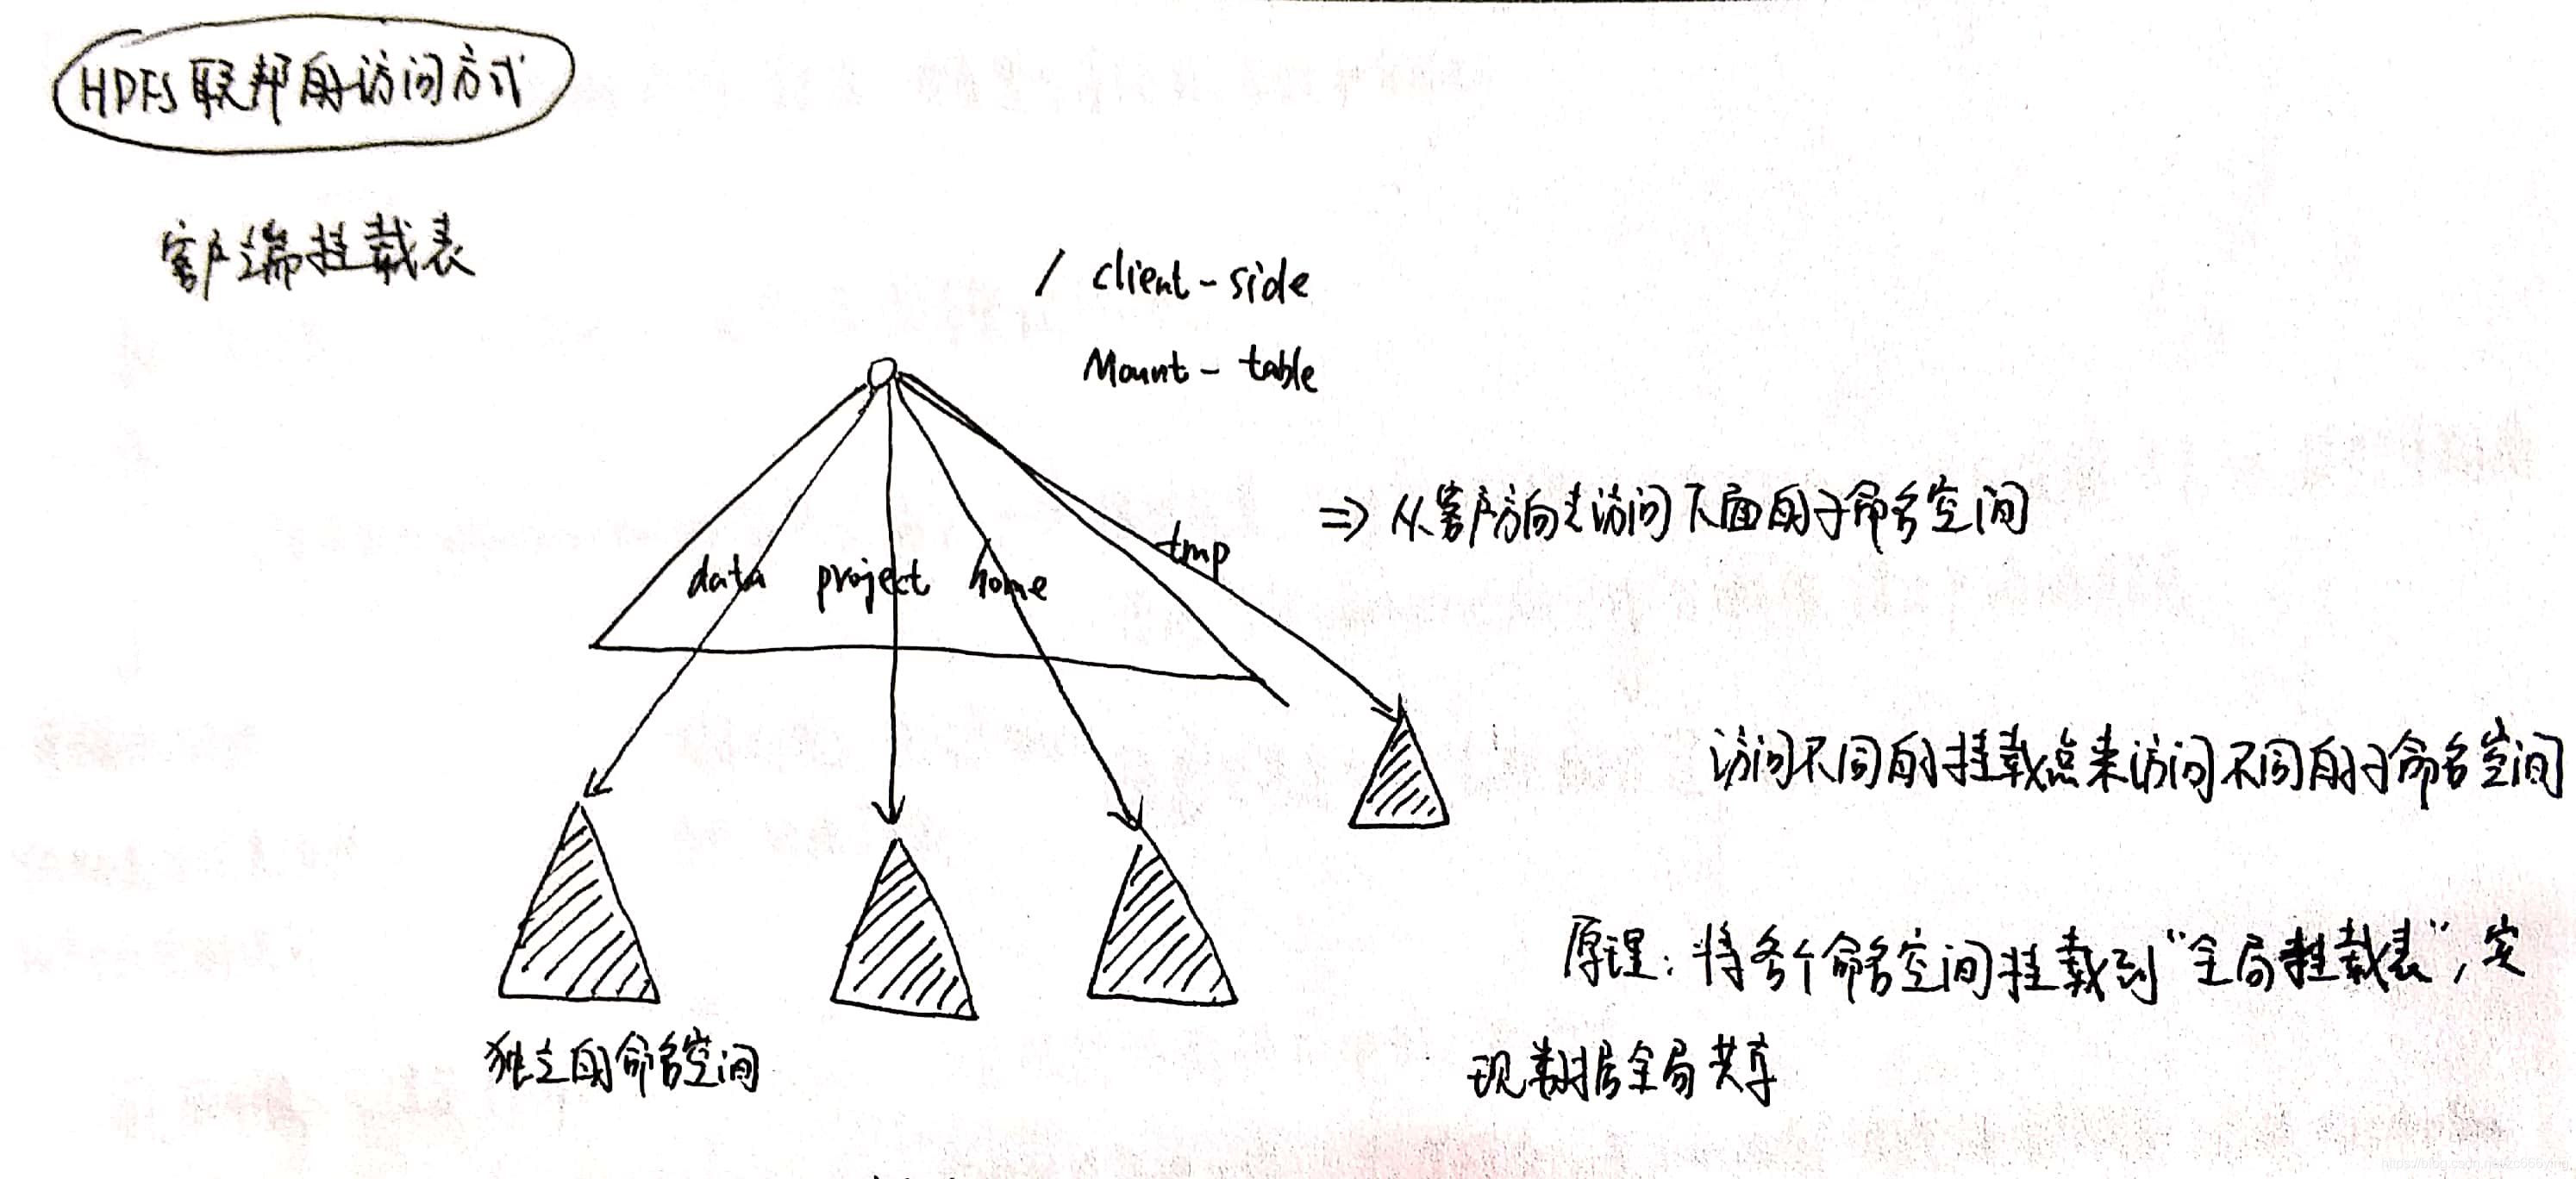 HDFS联邦的访问方式
客户端挂载表
/ client-side
Mount-table
⇒ 从客户方向去访问下面的子命名空间
data project home tmp
访问不同的挂载点来访问不同的子命名空间
原理：将各个命名空间挂载到“全局挂载表”，实
现数据全局共享
独立的命名空间